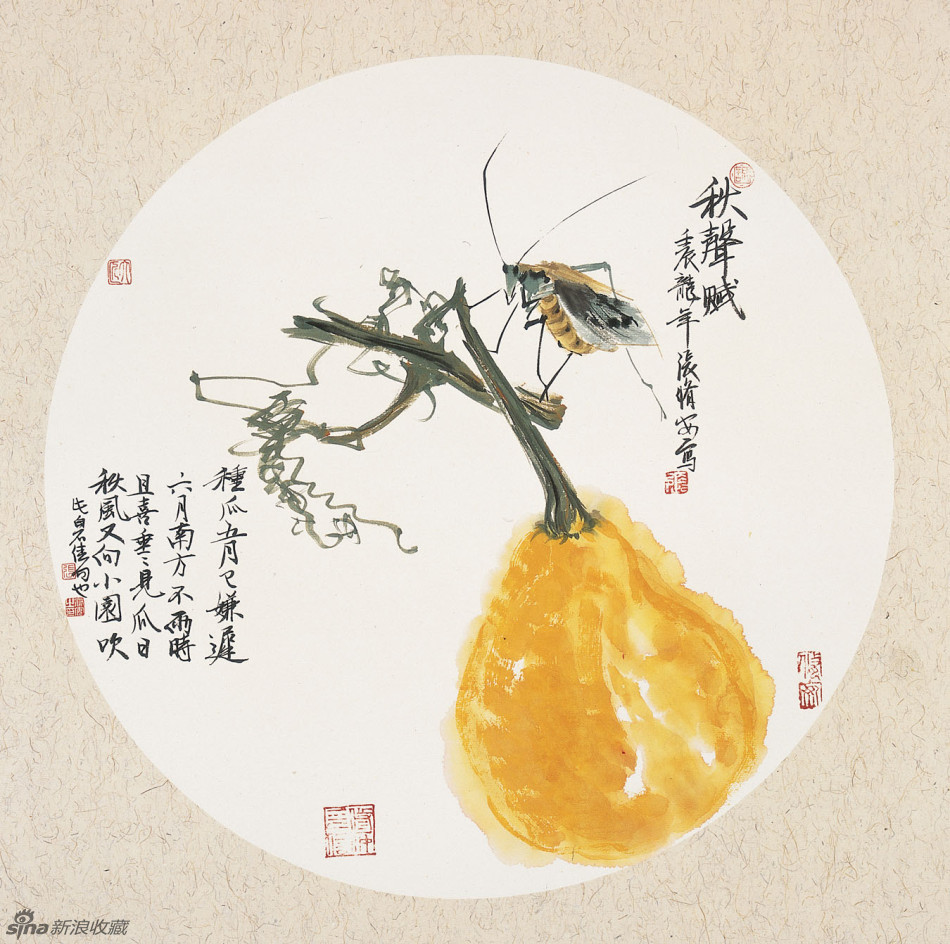 秋聲賦
壬辰龍年張脩安寫
種瓜五月已嫌遲
六月南方不雨時
且喜垂〻見瓜日
秋風又向小園吹
白石佳句也
sina新浪收藏